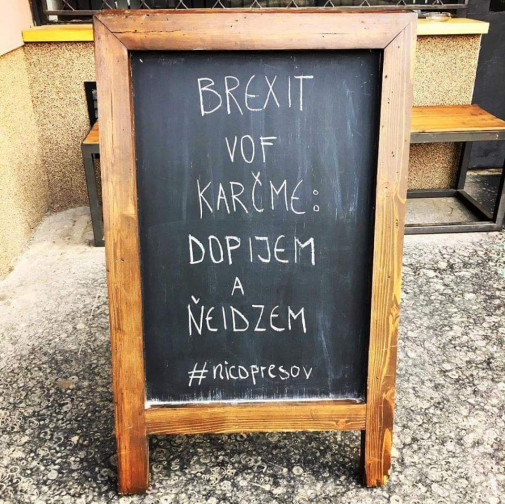 BREXIT
VOF
KARČME:
DOPIJEM
A
ŇEIDZEM
#nicopresov